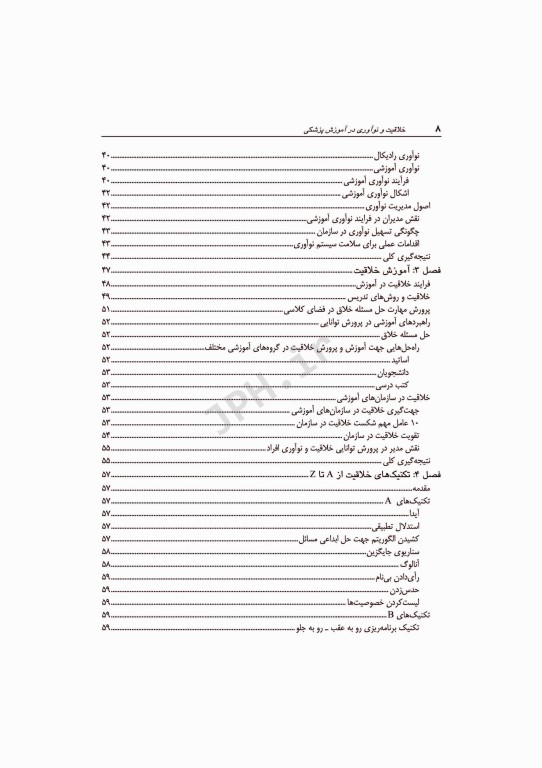 ۸ خلاقیت و نوآوری در آموزش پزشکی
نوآوری رادیکال ۴۰
نوآوری آموزشی ۴۰
فرآیند نوآوری آموزشی ۴۰
اشکال نوآوری آموزشی ۴۲
اصول مدیریت نوآوری ۴۲
نقش مدیران در فرایند نوآوری آموزشی ۴۲
چگونگی تسهیل نوآوری در سازمان ۴۳
اقدامات عملی برای سلامت سیستم نوآوری ۴۳
نتیجه‌گیری کلی ۴۴
فصل ۳: آموزش خلاقیت ۴۷
فرایند خلاقیت در آموزش ۴۸
خلاقیت و روش‌های تدریس ۴۹
پرورش مهارت حل مسئله خلاق در فضای کلاسی ۵۱
راهبردهای آموزشی در پرورش توانایی ۵۲
حل مسئله خلاق ۵۲
راه‌حل‌هایی جهت آموزش و پرورش خلاقیت در گروه‌های آموزشی مختلف ۵۲
اساتید ۵۲
دانشجویان ۵۳
کتب درسی ۵۳
خلاقیت در سازمان‌های آموزشی ۵۳
جهت‌گیری خلاقیت در سازمان‌های آموزشی ۵۳
۱۰ عامل مهم شکست خلاقیت در سازمان ۵۳
تقویت خلاقیت در سازمان ۵۴
نقش مدیر در پرورش توانایی خلاقیت و نوآوری افراد ۵۵
نتیجه‌گیری کلی ۵۵
فصل ۴: تکنیک‌های خلاقیت از A تا Z ۵۷
مقدمه ۵۷
تکنیک‌های A ۵۷
آیدا ۵۷
استدلال تطبیقی ۵۷
کشیدن الگوریتم جهت حل ابداعی مسائل ۵۷
سناریوی جایگزین ۵۸
آنالوگ ۵۸
رأی‌دادن بی‌نام ۵۹
حدس‌زدن ۵۹
لیست‌کردن خصوصیت‌ها ۵۹
تکنیک‌های B ۵۹
تکنیک برنامه‌ریزی رو به عقب ـ رو به جلو ۵۹
JPH.ir